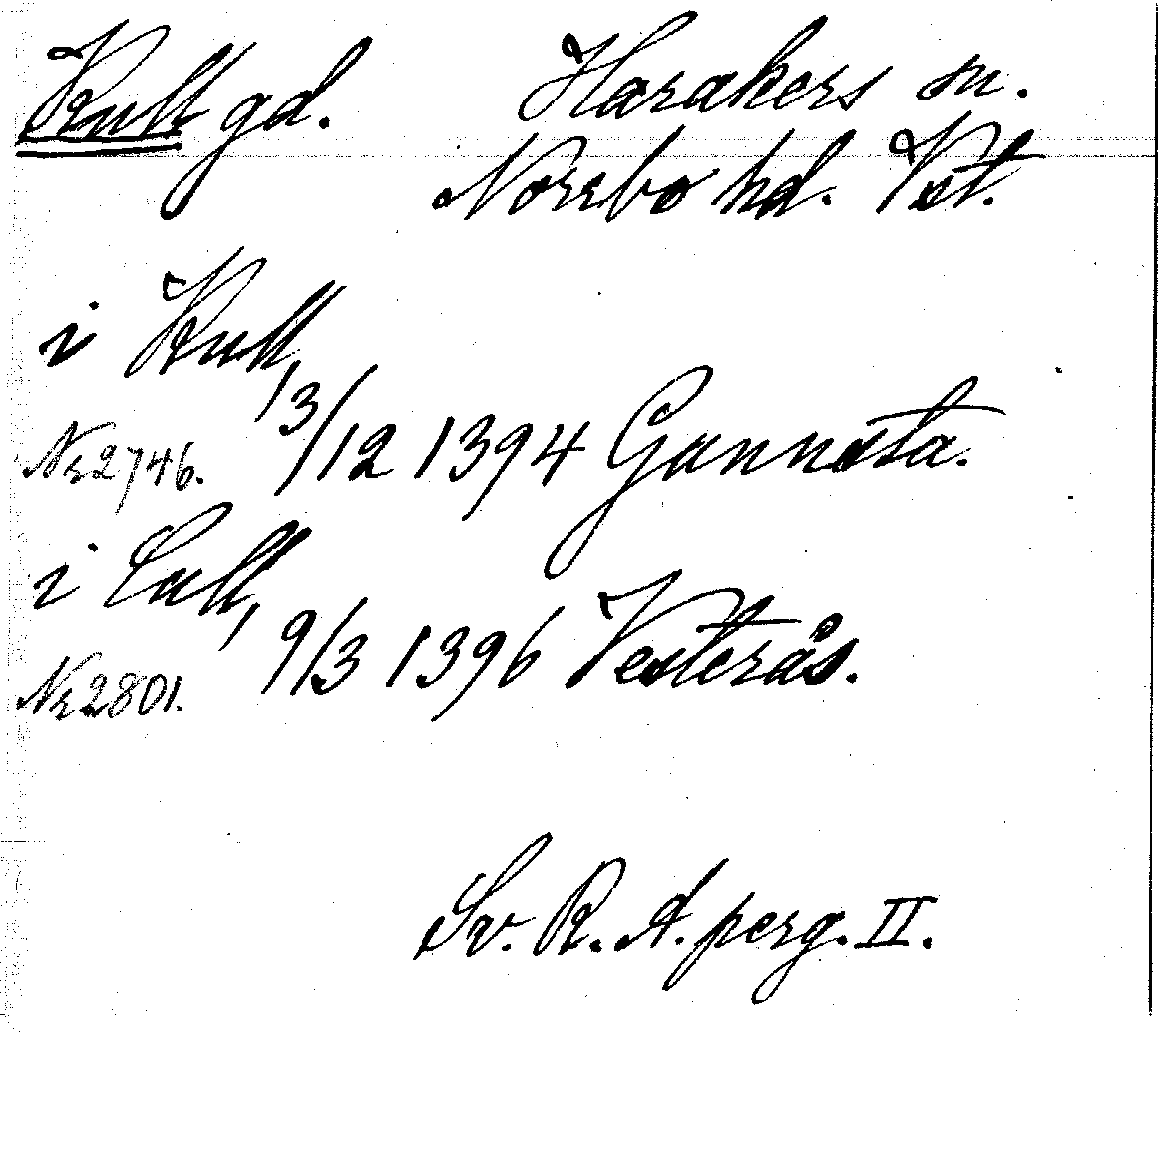 Kull gd. Harakers sn.
Norrbo hd. Vstl.
i Kull,
Nr 2746. 13/12 1394 Gunnesta.
i Cull,
Nr 2801. 9/3 1396 Vesterås.
Sv. R. A. perg. II.